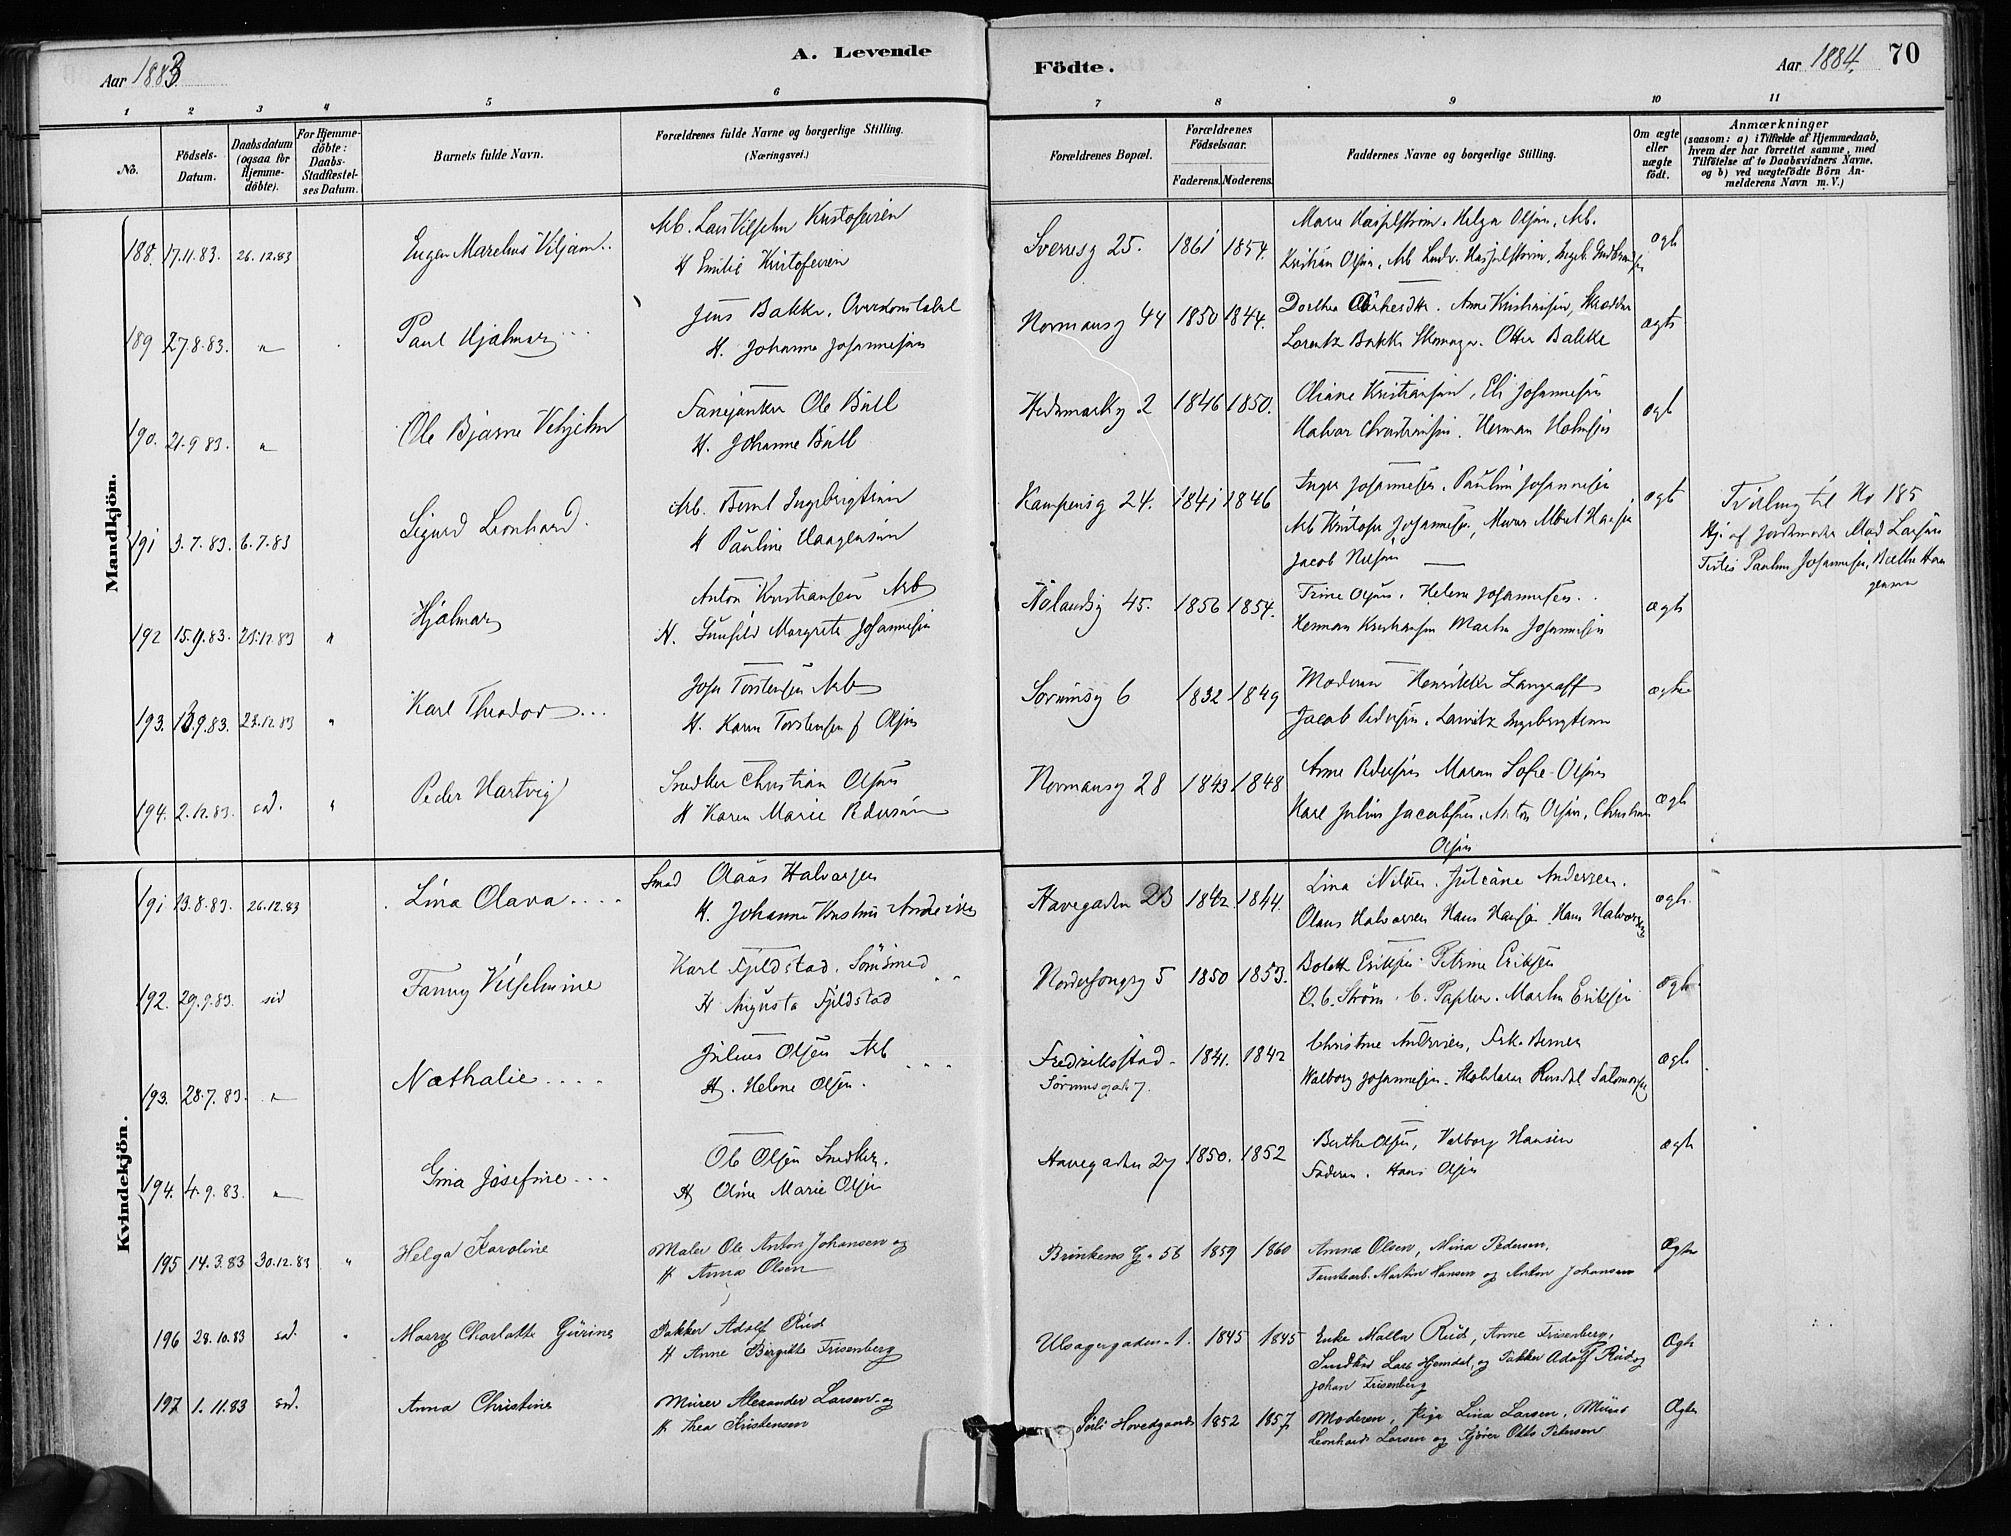 Aar 1883
A. Levende
Födte.
Aar 1884.
70
1 2 3 4 5 6 7 8 9 10 11
No.
Födsels-Datum.
Daabsdatum (ogsaa for Hjemme-döbte).
For Hjemme-döbte: Daabs-Stadfæstel-ses Datum.
Barnets fulde Navn.
Forældrenes fulde Navne og borgerlige Stilling.
(Næringsvei.)
Forældrenes Bopæl.
Forældrenes Födselsaar.
Faderens. Moderens.
Faddernes Navne og borgerlige Stilling.
Om ægte eller uægte födt.
Anmærkninger
(saasom: a) i Tilfælde af Hjemmedaab, hvem der har forrettet samme, med Tilföielse af to Daabsvidners Navne, og b) ved uægtefödte Börn An-melderens Navn m. V.)
Mandkjön.
188. 17.11.83. 26.12.83 Eugen Marelius Viljam Arb. Lars Vilhelm Kristofersen
H Emilie Kristofersen Sverresg 25. 1861 1854. Marie Haspelstrøm. Helga Olsen. Arb.
Kristian Olsen, Arb Ludv. Haspelstrøm, Ægt
189 27.8.83. " Paul Hjalmar Jens Bakke, Overkonstabel
H. Johanne Johannesen Normansg 44 1850 1844. Dorthea Anne Kristiansen,
Lorentz Bakke Otto Bakke ægte
190. 21.9 83. " Ole Bjarne Vilhjelm Fanejunker Ole Bull
H. Johanne Bull Hedemarksg 2 1846 1850. Oliane Kristiansen, Eli Johannesen
Halvor Christiansen. Herman Holmsen ægt
191 3.7.83. 6.7.83 Sigurd Leonhard. Arb. Bernt Ingebrigtsen
H Pauline Haagensen Kampensg 24. 1841 1846 Inger Johannesen. Pauline Johannesen
Arb Kristofer Johannesen, Murer Albert Hansen
Jacob Nilsen ægt Tvilling til No 185
Hj. af Jordemoder Mad Larsen
Pauline Johannesen, Haagensen
192 15.9.83. 25.12.83 " Hjalmar Anton Kristiansen Arb
H. Gunhild Margrete Johannesen Hølandsg 45. 1856 1854. Trine Olsen. Helene Johannesen.
Herman Kristiansen Martin Johannesen ægte
193. 13.9.83. 23.12.83 " Karl Theodor Johan Torstensen Arb
H. Karen Torstensen f Olsen Sørumsg 6 1832 1849 Moderen Henrikke Langraff
Jacob Pedersen, Lauritz Ingebrigtsen ægte
194. 2.12.83. sad. " Peder Hartvig Snedker Christian Olsen
H Karen Marie Pedersen Normansg 28 1843 1848 Anne Pedersen Maren Sofie Olsen
Karl Julius Jacobsen, Anton Olsen, Christian
Olsen ægte
Kvindekjön.
191 13.8.83. 26.12.83 Lina Olava Smed Olaus Halvorsen
H. Johanne Kristine Andersen Havegaden 23 1842 1844. Lina Nilsen. Juliane Andersen.
Olaus Halvorsen Hans Hansen Hans Halvorsen ægte.
192. 29.9.83. sad Fanny Vilhelmine Karl Fjeldstad. Sømsmed
H Augusta Fjeldstad 5 1850 1853. Bolette Eriksen. Petrine Eriksen
O.C. Strøm. Martin Eriksen ægte.
193. 28.7.83. " Nathalie Julius Olsen Arb
H. Helene Olsen. Fredrikkstad
Sørumsgade 7. 1841. 1842 Christine Andersen, Frk. Berner
Valborg Johannesen. Salomonsen ægte
194. 4.9.83. " Gina Josefine Ole Olsen Snedker.
H Oline Marie Olsen Havegaden 27 1850. 1852 Berthe Olsen, Valborg Hansen
Faderen. Hans Olsen ægte
195 14.3.83 30.12.83 " Helga Karoline Maler Ole Anton Johansen og
H Anna Olsen Brinkens G. 56 1859 1860 Anna Olsen, Mina Pedersen,
Tomtearb. Martin Hansen og Anton Johansen Ægte
196 28.10.83 sad. " Maary Charlotte Gurine Pakker Adolf Rud
H Anne Birgitte Frisenberg Ulsagergaden 1. 1845 1845 Enke Malla Rud, Anne Frisenberg,
Snedker Lars Hjemdal, og Pakker Adolf Rud og
Johan Frisenberg Ægte
197 1.11.83 sad. Anna Christine Murer Alexander Larsen og
H Thea Kristensen Søli Hovedgaard 1852 1857. Moderen, Pige Lina Larsen, Murer
Leonhard Larsen og Kjører Otto Petersen Ægte